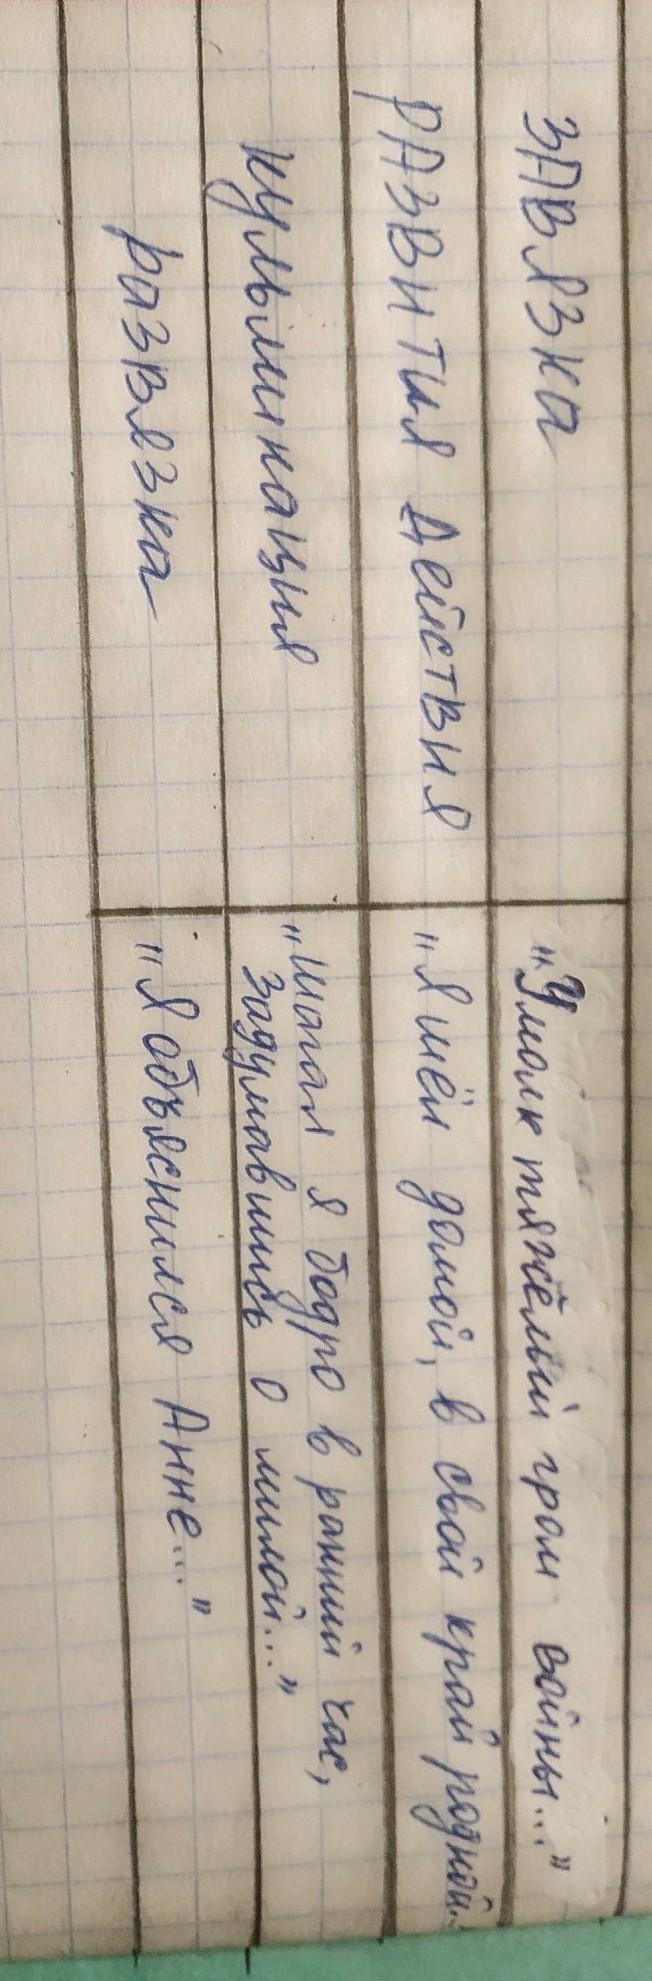 завязка
„Умолк тяжёлый гром войны..."
развития действия
„Я шёл домой, в свой край родной..
кульминация
„Шагал я бодро в ранний час,
задумавшись о милой..."
развязка
„Я объяснился Анне..."